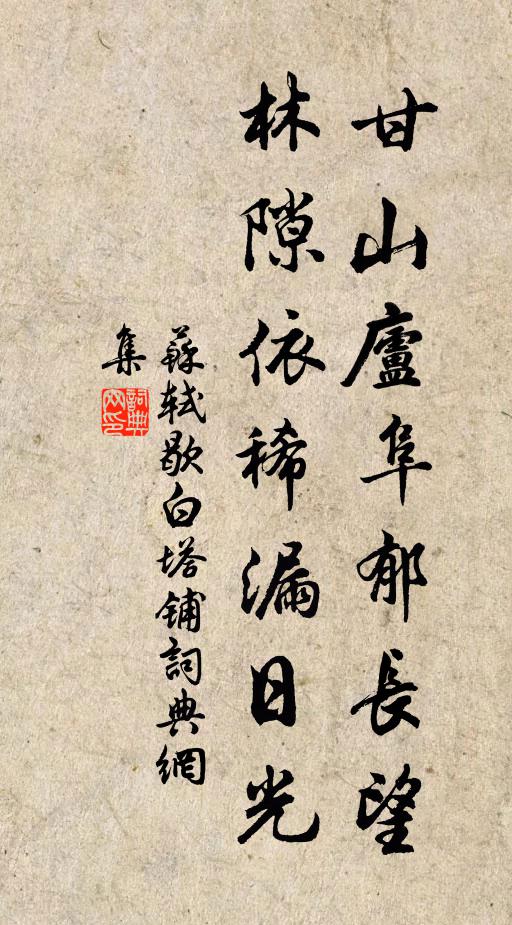 甘山廬阜郁長望
林隙依稀漏日光
蘇軾歇白塔鋪詞典網
集
詞典網印